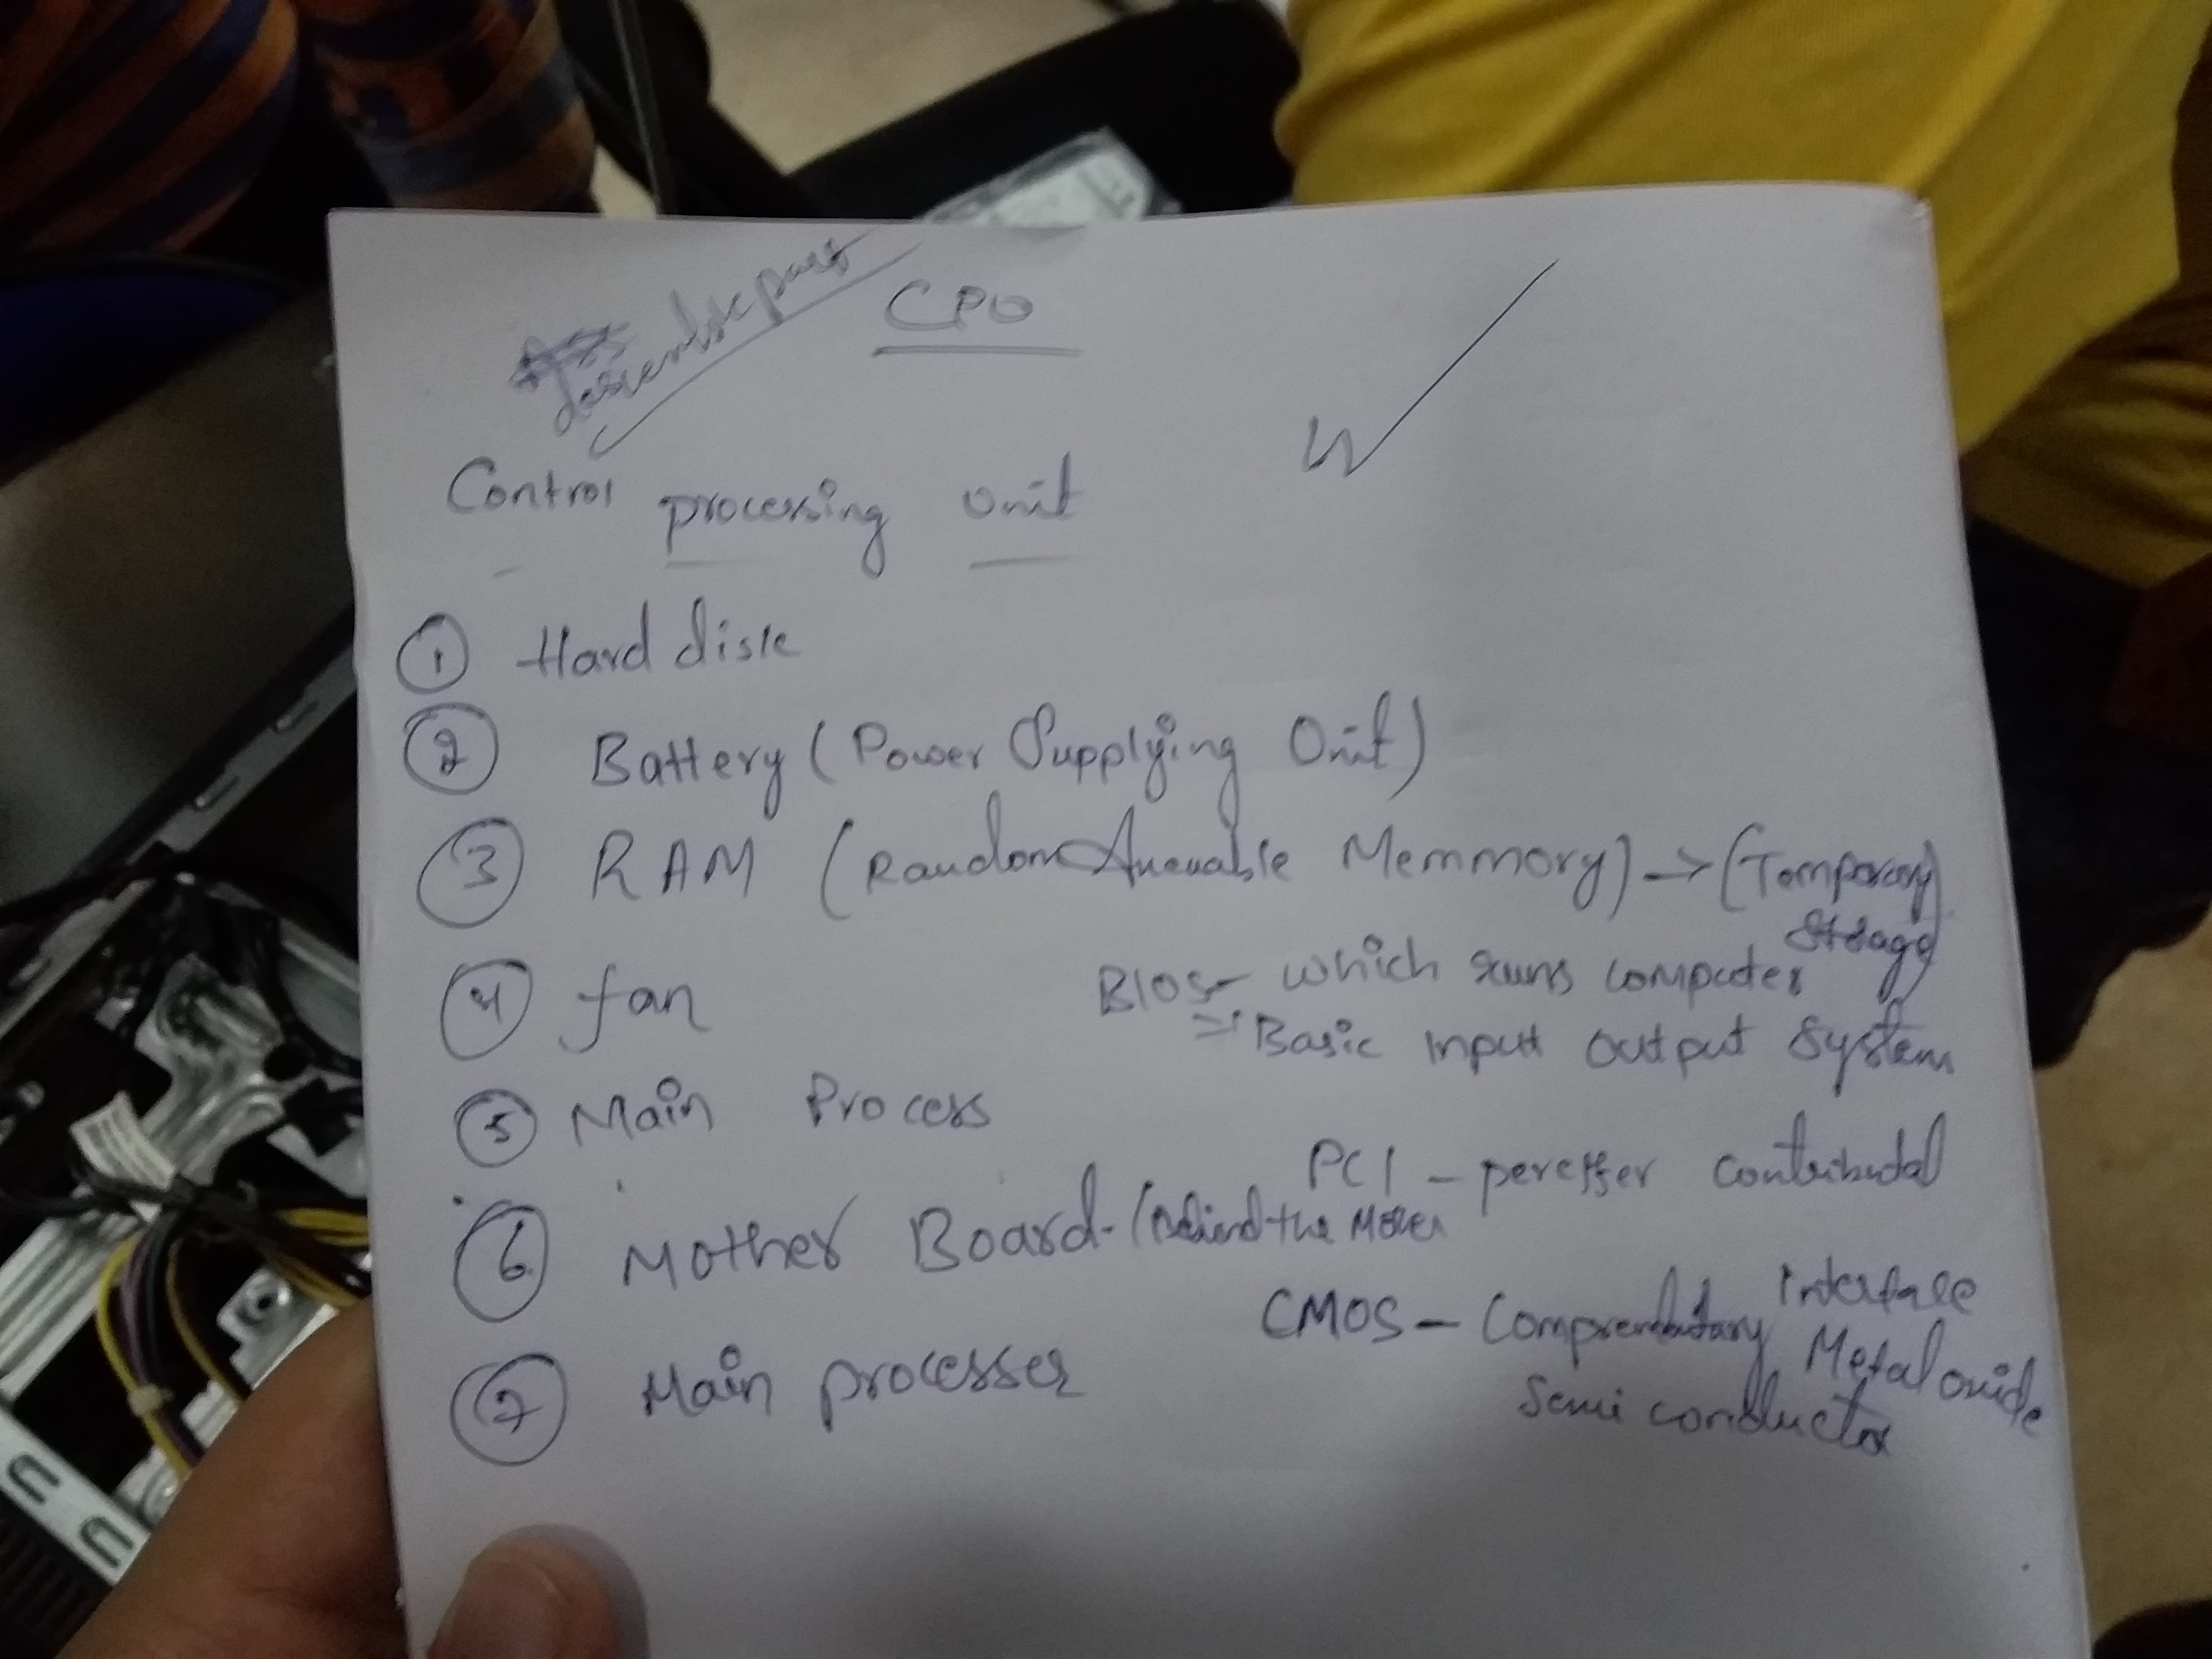 CPU
Control processing unit
1 Hard disk
2 Battery (Power Supplying Unit)
3 RAM (Random Memmory) → (Temporary
Storage)
4 fan
BIOS - which runs computer
⇒ Basic input output System
5 Main Process
PCI - pereffer contributal
Interface
6 Mother Board - (Behind the
CMOS - Metal oxide
Semi conductor
7 Main processer